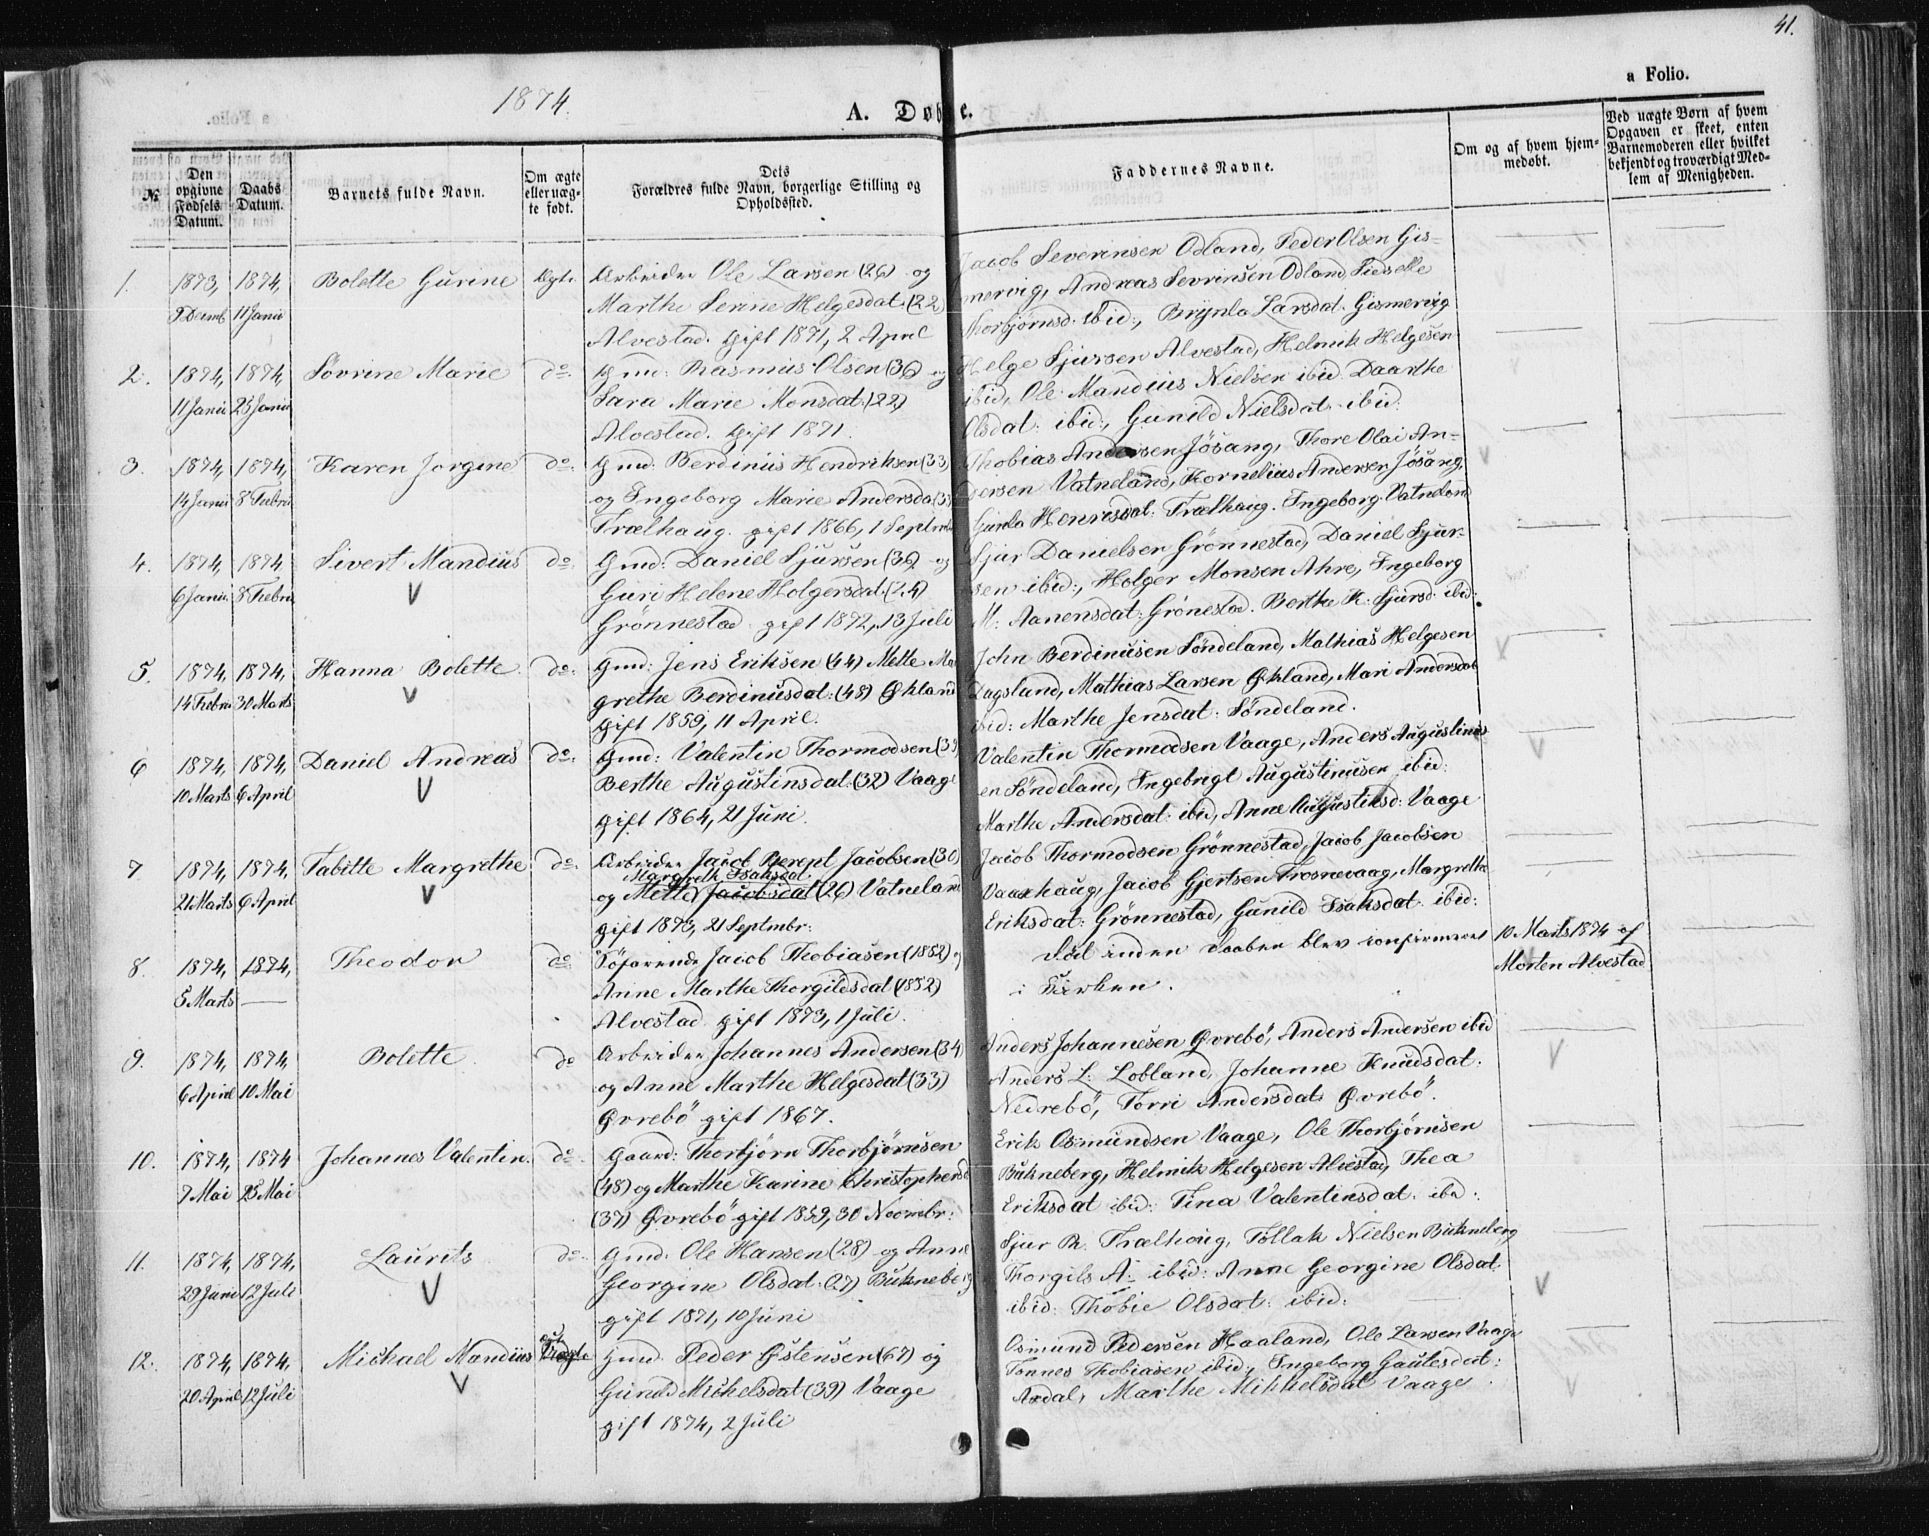 41.
a Folio.
1874.
A. Døbte.
№
Den opgivne Fødsels Datum.
Daabs Datum.
Barnets fulde Navn.
Om ægte eller uægte født.
Dets Forældres fulde Navn, borgerlige Stilling og Opholdssted.
Faddernes Navne.
Om og af hvem hjemmedøbt.
Ved uægte Børn af hvem Opgaven er skeet, enten Barnemoderen eller hvilket bekjendt og troværdigt Medlem af Menigheden.
1. 1873, 1874, Bolette Gurine Ægte. Arbeider Ole Larsen (26) og Jacob Severinsen Odland, Peder Olsen Gis-
9 Decemb 11 Janu Marthe Serine Helgesdat. (22) mervig, Andreas Sevrinsen Odland
Alvestad. gift 1871, 2 April Thorbjørnsd. ibid:, Larsdat. Gismervig
2. 1874, 1874, Sövrine Marie do. Gmd: Rasmus Olsen (36) og Helge Sjursen Alvestad, Helmik Helgesen
11 Janu 25 Janu Sara Marie Monsdat. (22) ibid, Ole Mandius Nielsen ibid. Daarthe
Alvestad. gift 1871. Olsdat: ibid:, Gunild Nielsdat. ibid.
3. 1874, 1874, Karen Jorgine do. Gmd. Berdinus Hendriksen (33) Thobias Andersen Jösang, Thore Olai An-
14 Janu 8 Febru og Ingeborg Marie Andersda dersen Vatneland, Kornelius Andersen Jösang,
Trælhaug. gift 1866, 1 Septmb Henriksdat: Trælhaug. Ingeborg Vatneland
4. 1874, 1874 Sivert Mandius do. Gmd: Daniel Sjursen (36) og Sjur Danielsen Grönnestad, Daniel Sjur-
6 Janu. 8 Febru V Guri Helene Holgersdat. (24) sen ibid:, Holger Monsen Ahre, Ingeborg
Grönnestad gift 1872, 13 Juli M: Aanensdat: Grönestad. Berthe K. Sjursd. ibid:
5. 1874, 1874, Hanna Bolette. do. Gmd: Jens Eriksen (44) Mette Mar John Berdinusen Söndeland, Mathias Helgesen
14 Febru 30 Marts V grethe Berdinusdat: (48) Økland Dagsland, Mathias Larsen Økland, Mari Andersdat
Gift 1859, 11 April. ibid: Marthe Jensdat: Söndeland.
6 1874, 1874, Daniel Andreas do. Gmd: Valentin Thormodsen (39 Valentin Thormodsen Vaage, Anders Augustinus
10 Marts 6 April V Berthe Augustinsdat. (32) Vaage en Söndeland, Ingebrigt Augustinusen ibid:
gift 1864, 21 Juni. Marthe Andersdat: ibid, Anne Augustinsd: Vaage
7 1874, 1874, Tabitte Margrethe do. Arbeider Jacob Berent Jacobsen (30) Jacob Thormodsen Grönnestad, Jacob Jacobsen
Margrethe Isaksdat.
21 Marts 6 April V og Mette Jacobsdat (26) Vatneland Vaarhaug, Jacob Gjertsen Trosnevaag, Margrethe
gift 1873, 21 Septmbr: Eriksdat: Grönnestad, Gunild Isaksdat. ibid:
8. 1874, 1874, Theodor do. Söfarende Jacob Thobiasen (1852) og död inden Daaben blev confirmeret 10 Marts 1874 af
5 Marts — Anne Marthe Thorgilsdat (1852) i Kirken. Morten Alvestad
Alvestad. gift 1873, 1 Juli.
9. 1874, 1874, Bolette. do Arbeider Johannes Andersen (34) Anders Johannesen Øvrebö, Anders Andersen ibid
6 April 10 Mai og Anne Marthe Helgesdat (33) Anders L: Lobland, Johanne Knudsdat.
Øvrebö gift 1867. Nedrebö, Torri Andersdat. Øvrebö.
10. 1874, 1874 Johannes Valentin. do. Gaard: Thorbjörn Thorbjörnsen Erik Osmundsen Vaage, Ole Thorbjörnsen
7 Mai 25 Mai (48) og Marthe Karine Christophersd Bukneberg, Helmik Helgesen Alvestad, Thea
(37) Øvrebö gift 1859, 30 Novembr: Eriksdat ibid: Tina Valentinsdat. ibid:
11. 1874, 1874, Laurits do. Gmd: Ole Hansen (28) og Anne Sjur R. Trælhoug, Tollak Nielsen Bukneberg
29 Juni 12 Juli V Georgine Olsdat. (27) Bukneberg Thorgils A: ibid: Anne Georgine Olsdat.
gift 1871, 10 Juni ibid: Thobie Olsdat: ibid:
12. 1874, 1874, Michael Mandius Uægte Gmd. Peder Østensen (67) og Osmund Pedersen Haaland, Ole Larsen Vaage
20 April 12 Juli V Gunild Michelsdat (39) Vaage Tonnes Thobiasen ibid:, Ingeborg Gautesdat:
gift 1874, 2 Juli Axdal, Marthe Mikkelsdat Vaage.